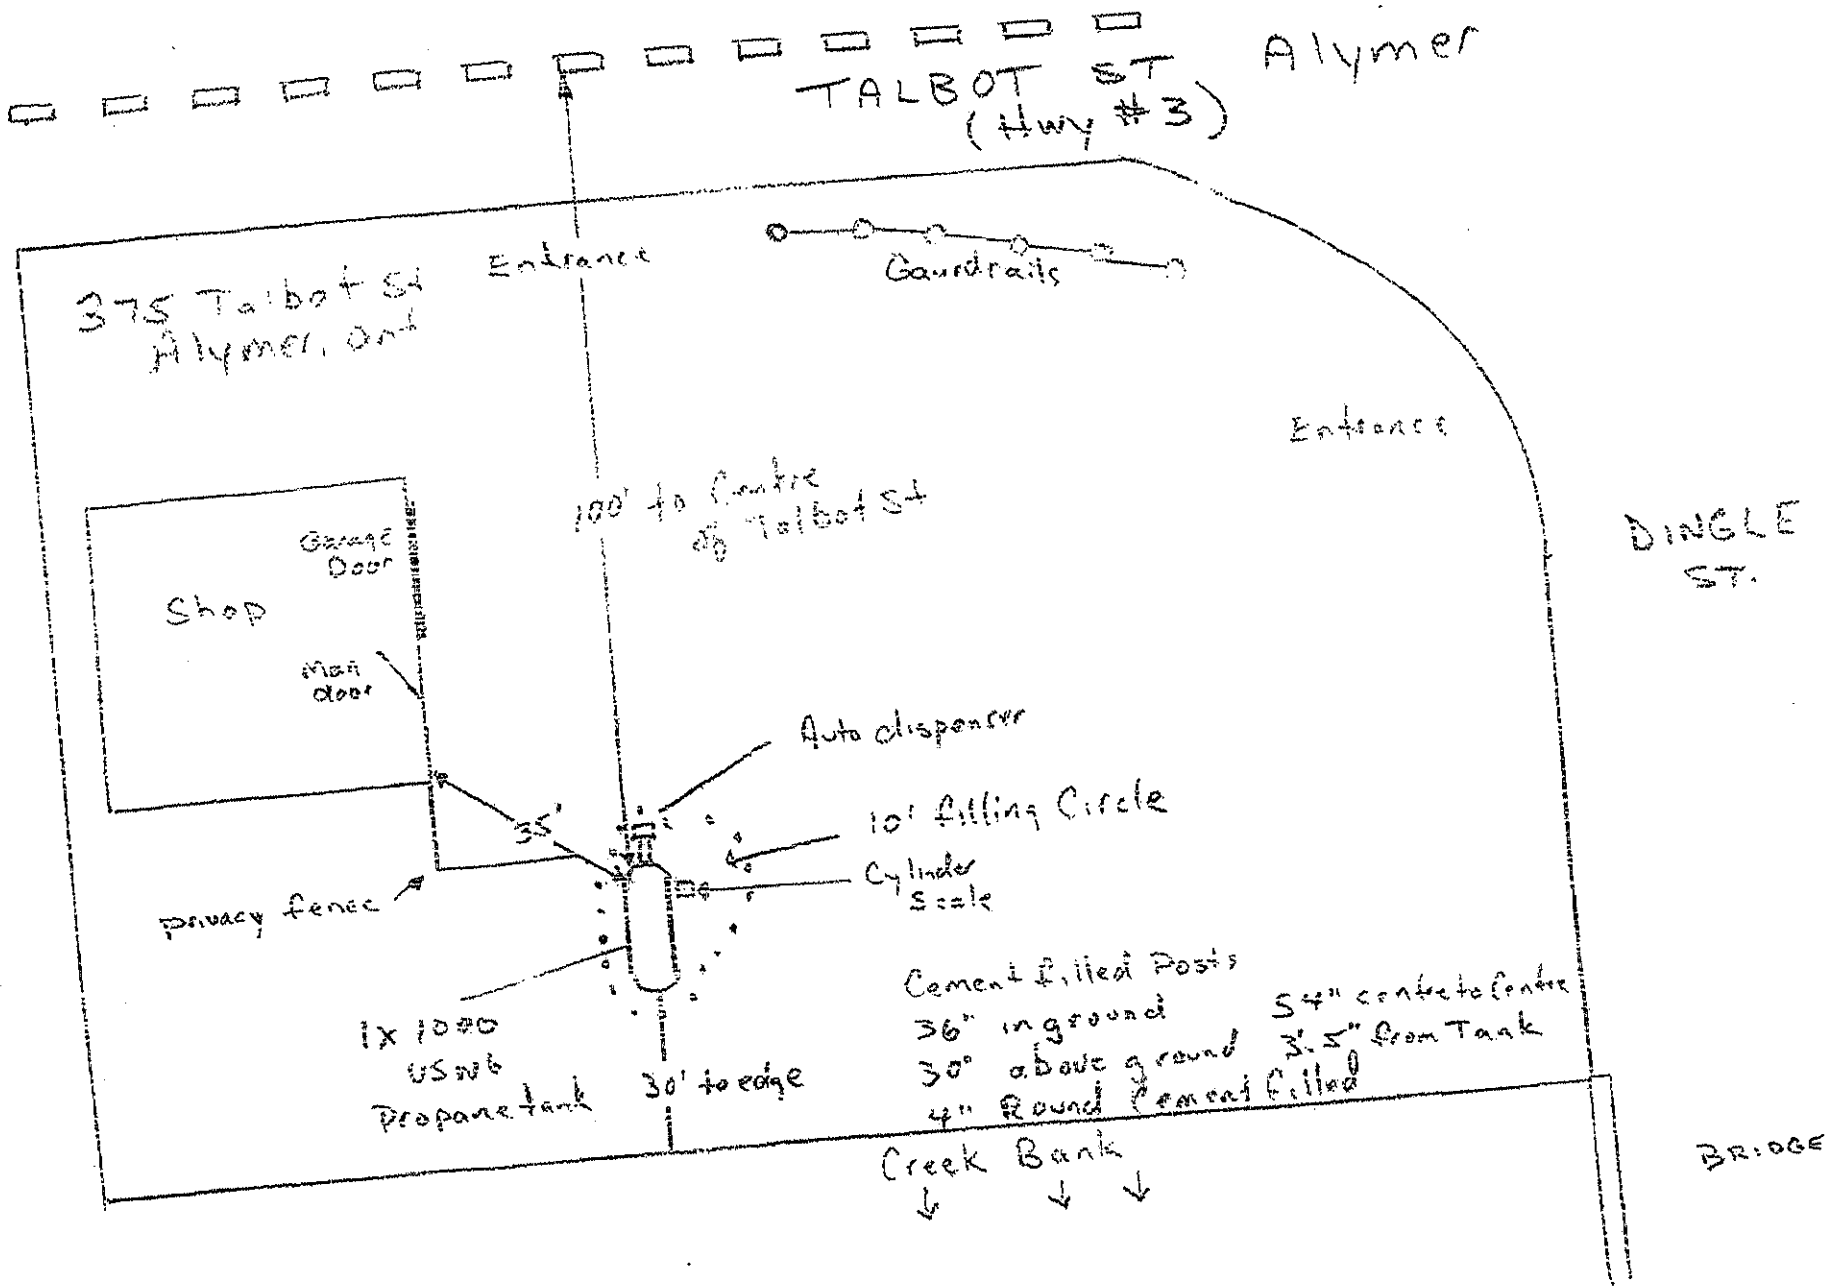 Alymer
TALBOT ST
(Hwy #3)
Entrance
Gaurdrails
375 Talbot St
Alymer, Ont
Entrance
100' to Centre
of Talbot St
DINGLE
ST.
Garage
Door
Shop
Man
door
Auto dispenser
35'
10' filling Circle
Cylinder
Scale
privacy fence
Cement filled Posts
36" in ground
54" centre to Centre
30" above ground
3'.5" from Tank
4" Round Cement filled
1x 1000
USWG
Propane tank
30' to edge
Creek Bank
BRIDGE